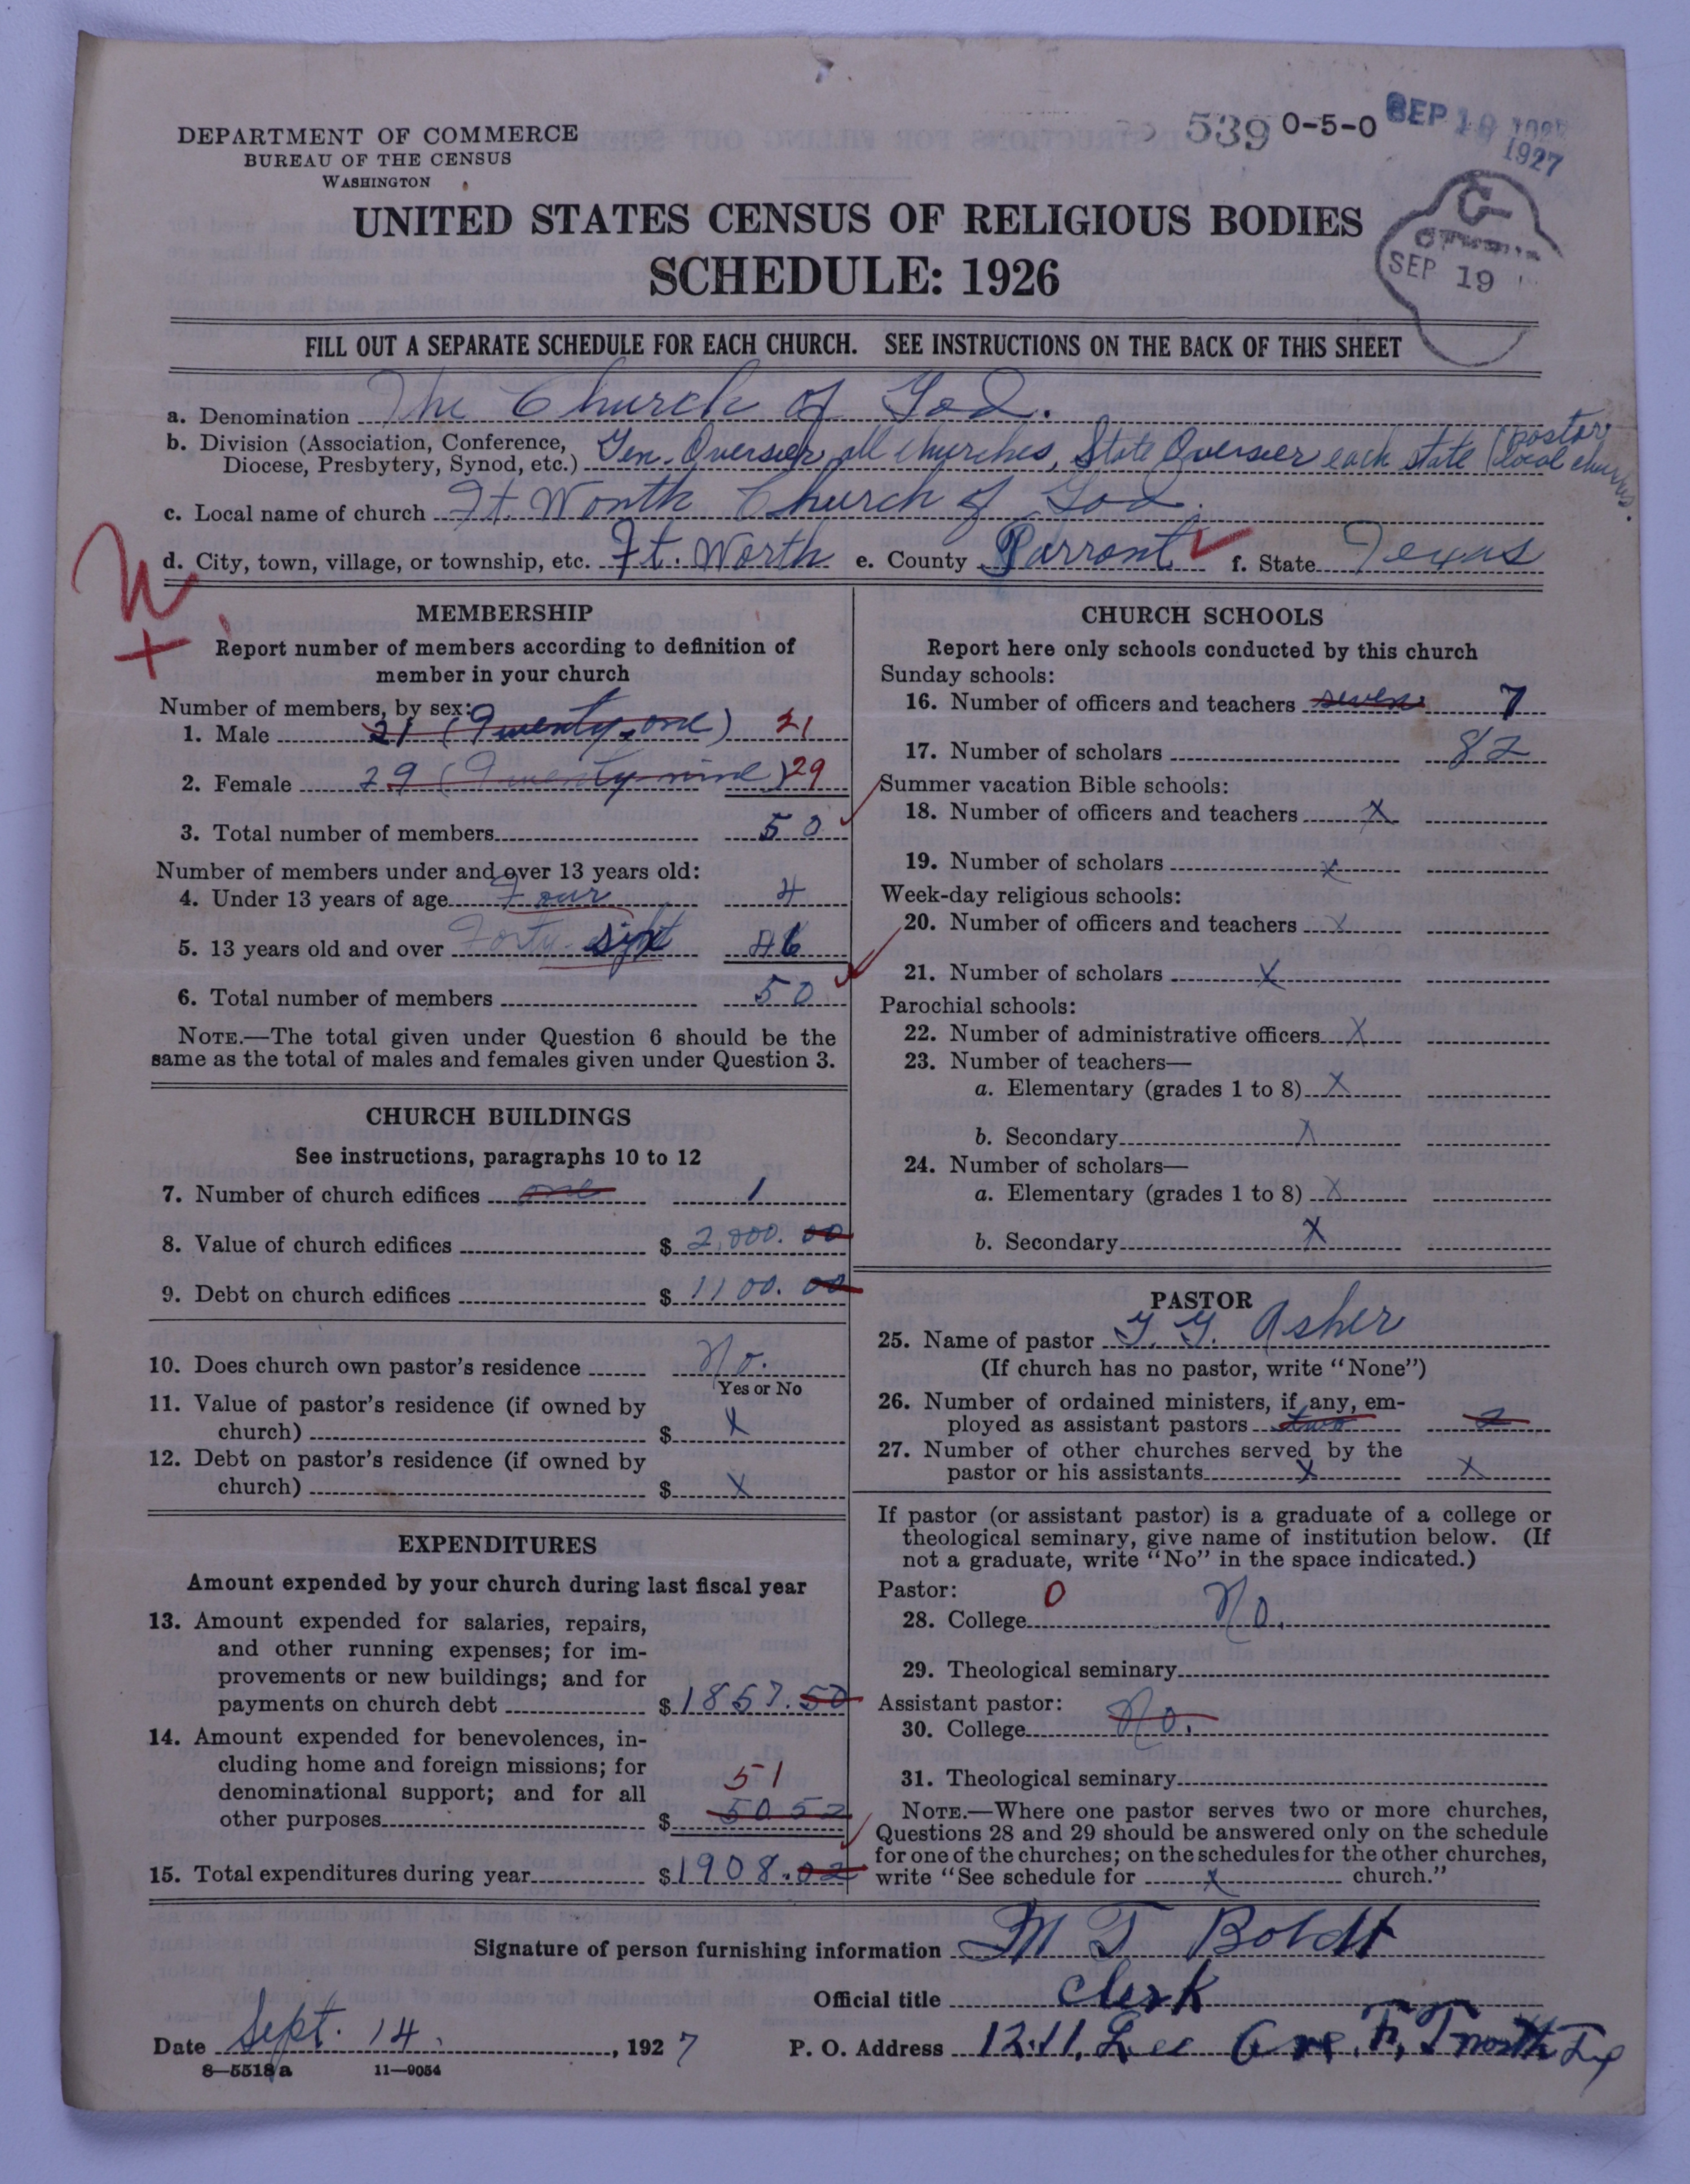 DEPARTMENT OF COMMERCE
BUREAU OF THE CENSUS
WASHINGTON
539 0-5-0 SEP 19
1927
SEP 19
UNITED STATES CENSUS OF RELIGIOUS BODIES
SCHEDULE: 1926
FILL OUT A SEPARATE SCHEDULE FOR EACH CHURCH. SEE INSTRUCTIONS ON THE BACK OF THIS SHEET
a. Denomination The Church of God.
b. Division (Association, Conference, Diocese, Presbytery, Synod, etc.) Gen. Overseer all churches, State Overseer each state (pastor local churchs.
c. Local name of church Ft. Worth Church of God.
d. City, town, village, or township, etc. Ft. Worth e. County Parront f. State Texas
W
+
MEMBERSHIP
Report number of members according to definition of
member in your church
Number of members, by sex:
1. Male 21 (Twenty-one) 21
2. Female 29 (Twenty-nine) 29
3. Total number of members 50
Number of members under and over 13 years old:
4. Under 13 years of age Four 4
5. 13 years old and over Forty-six 46
6. Total number of members 50
NOTE.—The total given under Question 6 should be the
same as the total of males and females given under Question 3.
CHURCH BUILDINGS
See instructions, paragraphs 10 to 12
7. Number of church edifices one 1
8. Value of church edifices $ 2,800.00
9. Debt on church edifices $ 1100.00
10. Does church own pastor's residence No.
Yes or No
11. Value of pastor's residence (if owned by
church) $ X
12. Debt on pastor's residence (if owned by
church) $ X
EXPENDITURES
Amount expended by your church during last fiscal year
13. Amount expended for salaries, repairs,
and other running expenses; for im-
provements or new buildings; and for
payments on church debt $ 1857.50
14. Amount expended for benevolences, in-
cluding home and foreign missions; for
denominational support; and for all
51
other purposes $ 50 52
15. Total expenditures during year $ 1908.02
CHURCH SCHOOLS
Report here only schools conducted by this church
Sunday schools:
16. Number of officers and teachers seven 7
17. Number of scholars 82
Summer vacation Bible schools:
18. Number of officers and teachers X
19. Number of scholars X
Week-day religious schools:
20. Number of officers and teachers X
21. Number of scholars X
Parochial schools:
22. Number of administrative officers X
23. Number of teachers—
a. Elementary (grades 1 to 8) X
b. Secondary X
24. Number of scholars—
a. Elementary (grades 1 to 8) X
b. Secondary X
PASTOR
25. Name of pastor Asher
(If church has no pastor, write "None")
26. Number of ordained ministers, if any, em-
ployed as assistant pastors two 2
27. Number of other churches served by the
pastor or his assistants X X
If pastor (or assistant pastor) is a graduate of a college or
theological seminary, give name of institution below. (If
not a graduate, write "No" in the space indicated.)
Pastor: 0
28. College No.
29. Theological seminary
Assistant pastor:
30. College No.
31. Theological seminary
NOTE.—Where one pastor serves two or more churches,
Questions 28 and 29 should be answered only on the schedule
for one of the churches; on the schedules for the other churches,
write "See schedule for X church."
Signature of person furnishing information M T Boldt
Official title Clerk
Date Sept. 14. , 1927 P. O. Address 1211. Lee Ave. Ft worth Tex
8—5518a 11—9054